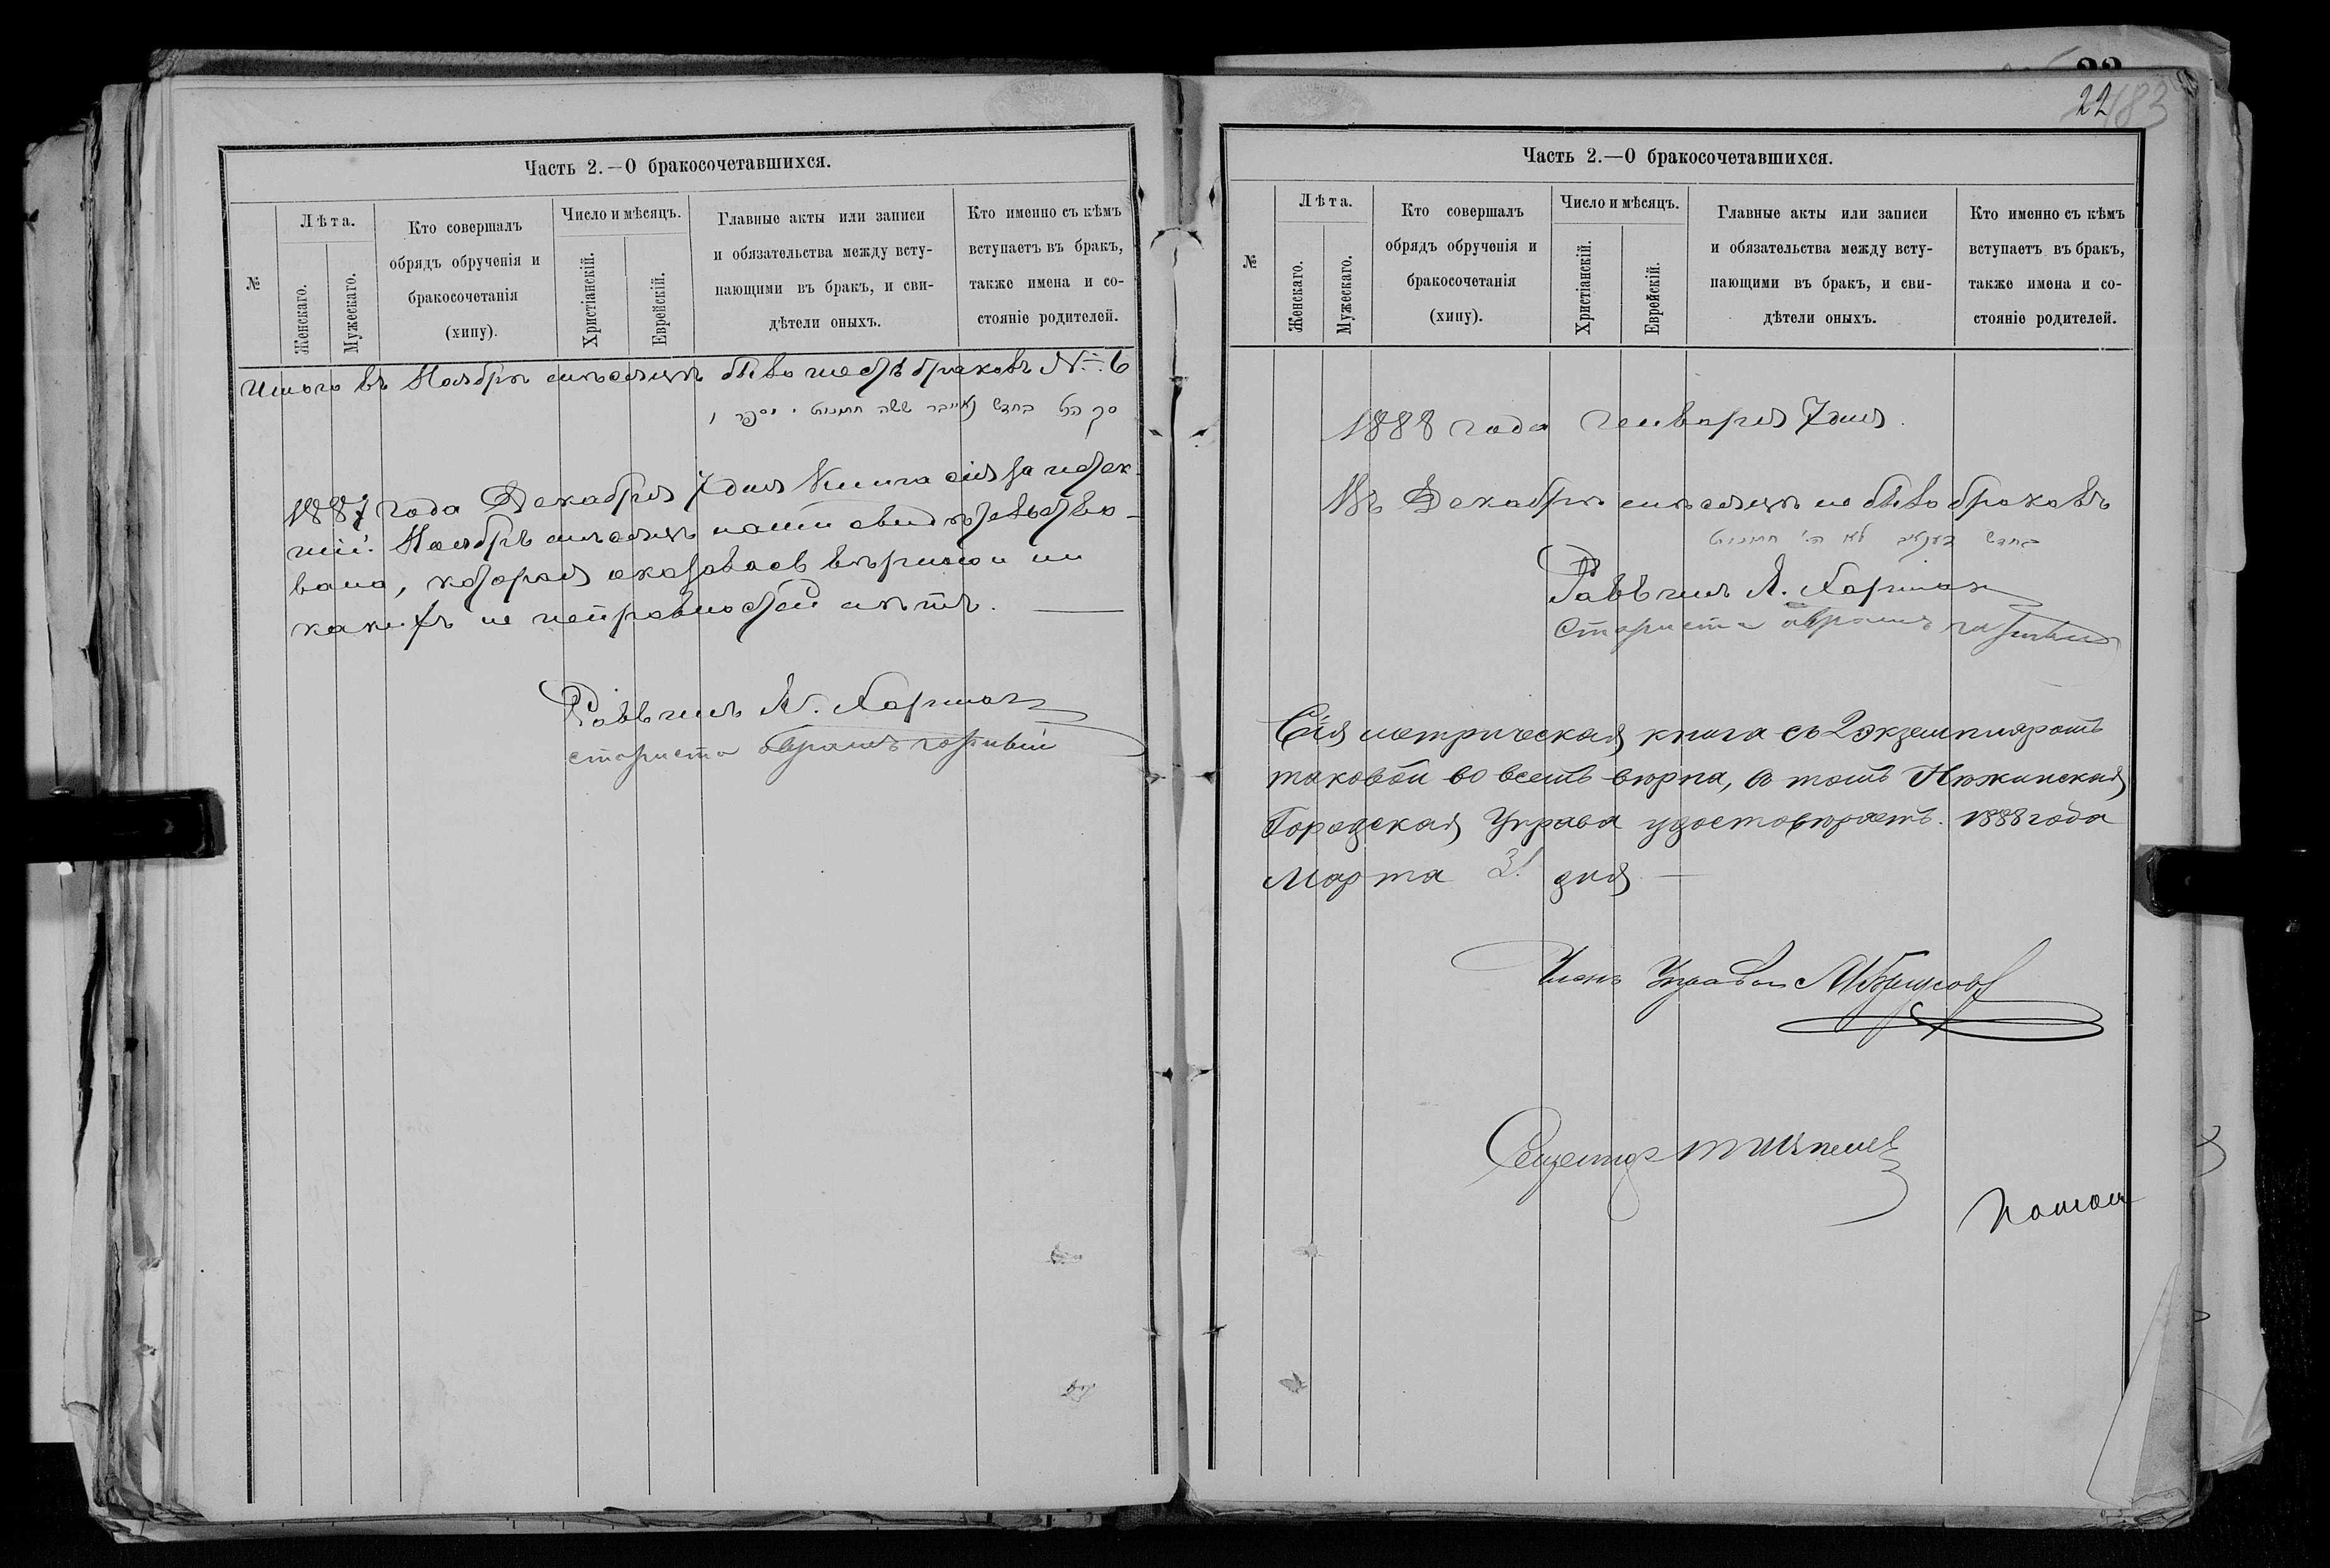 Часть 2.—О бракосочетавшихся.
№
Лѣта.
Женскаго.
Мужескаго.
Кто совершалъ
обрядъ обрученія и
бракосочетанія
(хипу).
Число и мѣсяцъ.
Христіанскій.
Еврейскій.
Главные акты или записи
и обязательства между всту-
пающими въ бракъ, и сви-
дѣтели оныхъ.
Кто именно съ кѣмъ
вступаетъ въ бракъ,
также имена и со-
стояніе родителей.
Итого въ Ноябрѣ мѣсяцѣ было шесть браковъ №: 6
1887 года Декабря 7 дня Книга сія за истек-
шій Ноябрь мѣсяцъ нами свидѣтельство-
вана, которая оказалась вѣрною и ни
какихъ не исправностей нѣтъ.
Раввинъ
староста Абрамъ
22
183
Часть 2.—О бракосочетавшихся.
№
Лѣта.
Женскаго.
Мужескаго.
Кто совершалъ
обрядъ обрученія и
бракосочетанія
(хипу).
Число и мѣсяцъ.
Христіанскій.
Еврейскій.
Главные акты или записи
и обязательства между всту-
пающими въ бракъ, и сви-
дѣтели оныхъ.
Кто именно съ кѣмъ
вступаетъ въ бракъ,
также имена и со-
стояніе родителей.
1888 года Генваря 7 дня.
Въ Декабрѣ мѣсяцѣ не было браковъ
Раввинъ
Староста Абрамъ
Сія метрическая книга съ 2 экземпляромъ
таковой во всемъ вѣрна, въ томъ Нѣжинская
Городская Управа удостовѣряетъ. 1888 года
Марта 31 дня
Членъ Управы
Секретарь